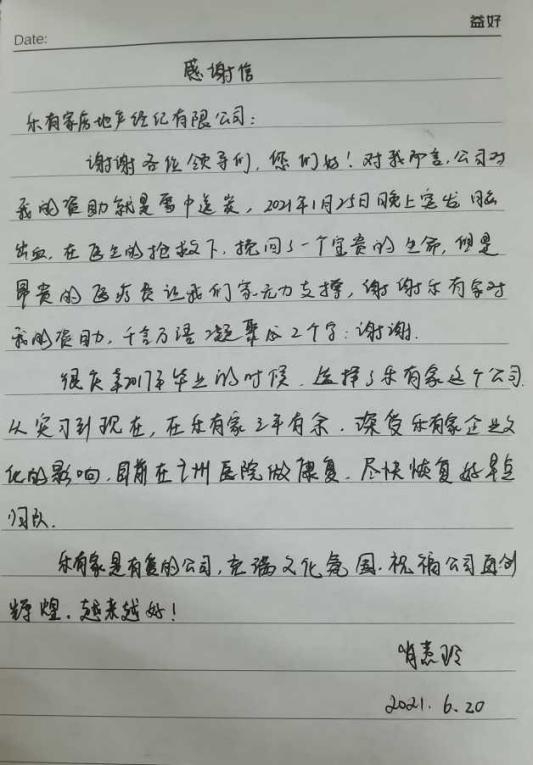 益好
Date:
感谢信
乐有家房地产经纪有限公司：
谢谢各位领导们，您们好！对我而言，公司对
我的资助就是雪中送炭，2021年1月25日晚上突发脑
出血，在医生的抢救下，挽回了一个宝贵的生命，但是
昂贵的医疗费让我们家无力支撑，谢谢乐有家对
我的资助，千言万语凝聚成2个字：谢谢.
很庆幸2017年毕业的时候，选择了乐有家这个公司.
从实习到现在，在乐有家3年有余．深受乐有家企业文
化的影响，目前在广州医院做康复．尽快恢复好早点
归队．
乐有家是有爱的公司，充满文化氛围．祝福公司再创
辉煌．越来越好！
肖惠玲
2021.6.20